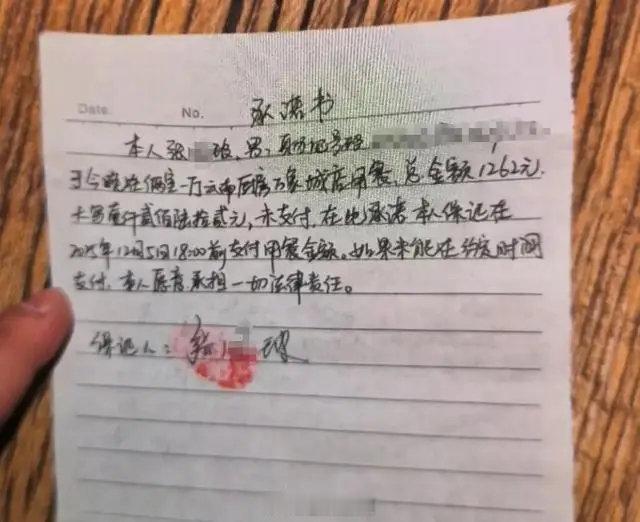 Date. No. 承诺书
本人张 玻,男,身份证号码
于今晚在俩宝一厅云南 万象城店用餐,总金额1262元.
大写壹仟贰佰陆拾贰元,未支付,在此承诺本人保证在
2025年12月5日18:00前支付用餐金额。如果未能在约定时间
支付,本人愿意承担一切法律责任。
保证人:张 玻